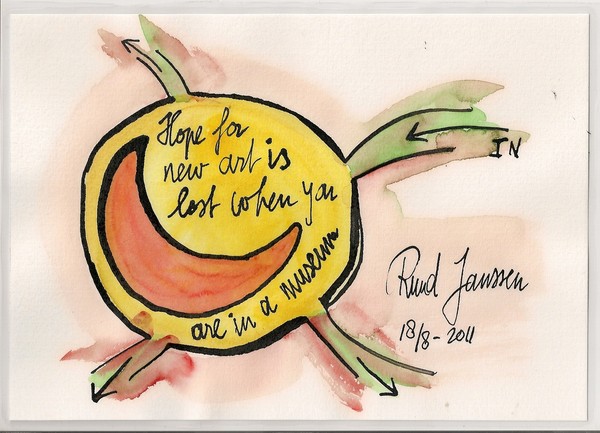 Hope for
new art is
lost when you
are in a museum
IN
Ruud Janssen
18/8-2011